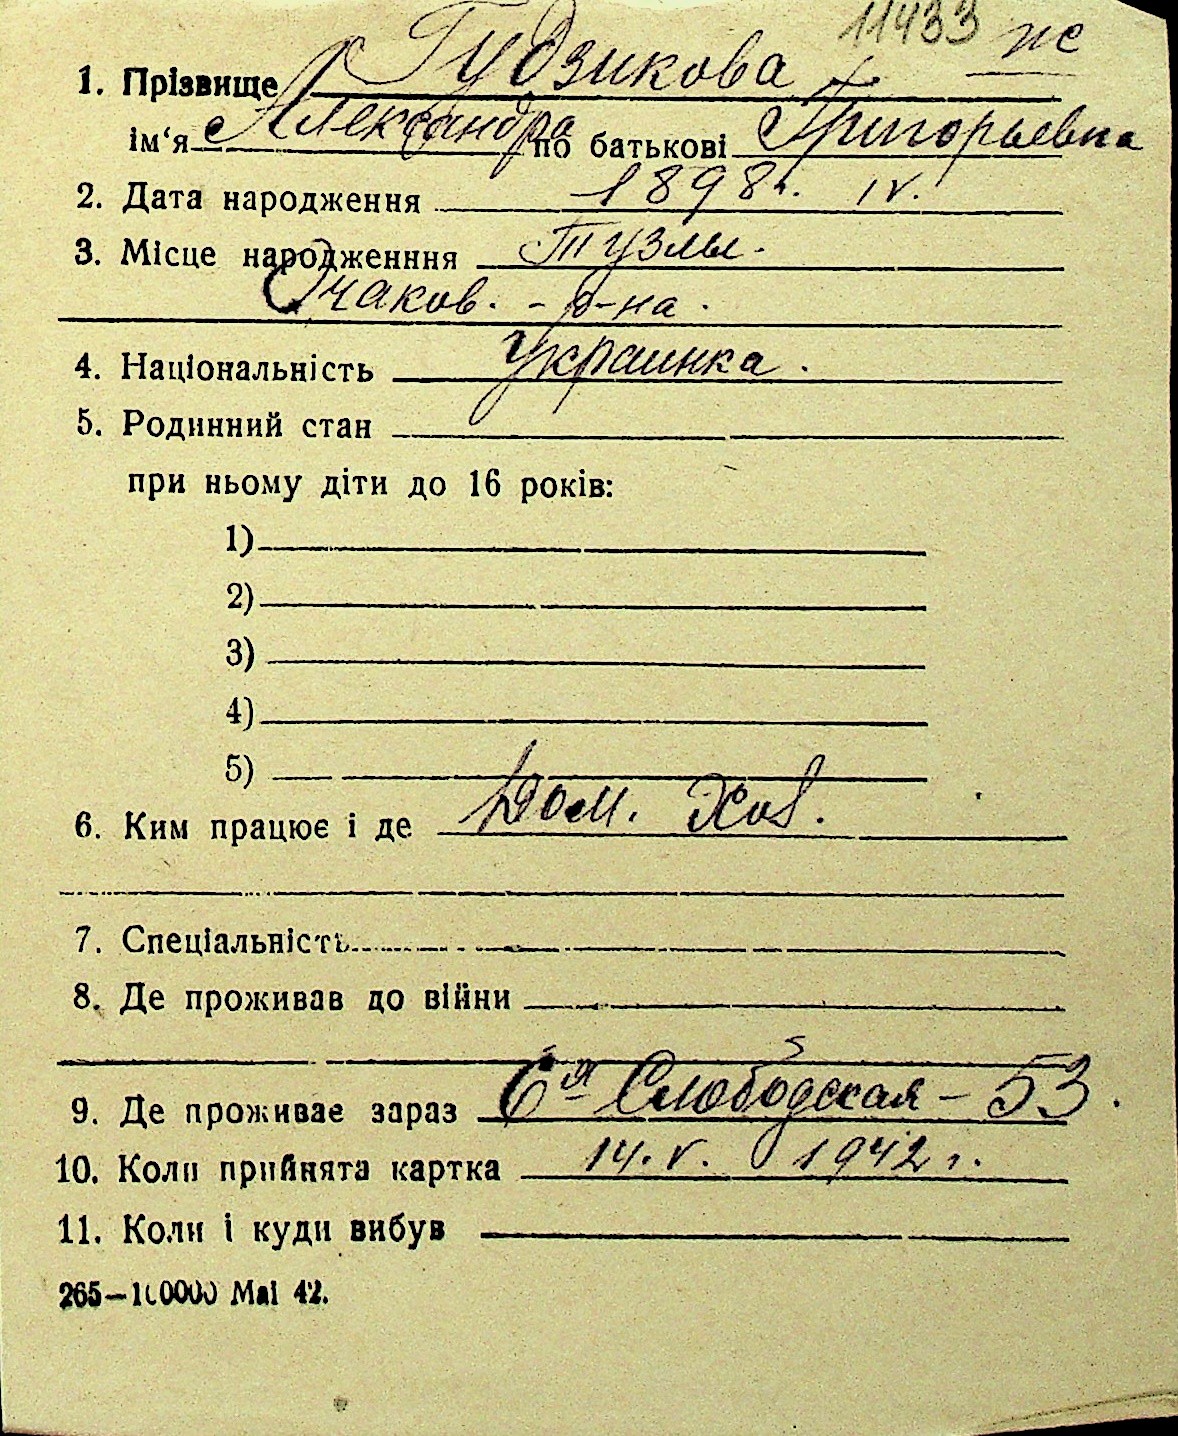 11433 ж
1. Прізвище Гудзикова
ім‘я Александра по батькові Григорьевна
2. Дата народження 1898 г. IV.
3. Місце народженння Тузлы.
Очаков. - р-на.
4. Національність Украинка.
5. Родинний стан
при ньому діти до 16 років:
1)
2)
3)
4)
5)
6. Ким працює і де Дом. Хоз.
7. Спеціальність
8. Де проживав до війни
9. Де проживае зараз 6я Слободская - 53.
10. Коли прийнята картка 14. V. 1942 г.
11. Коли і куди вибув
265—100000 Маі 42.